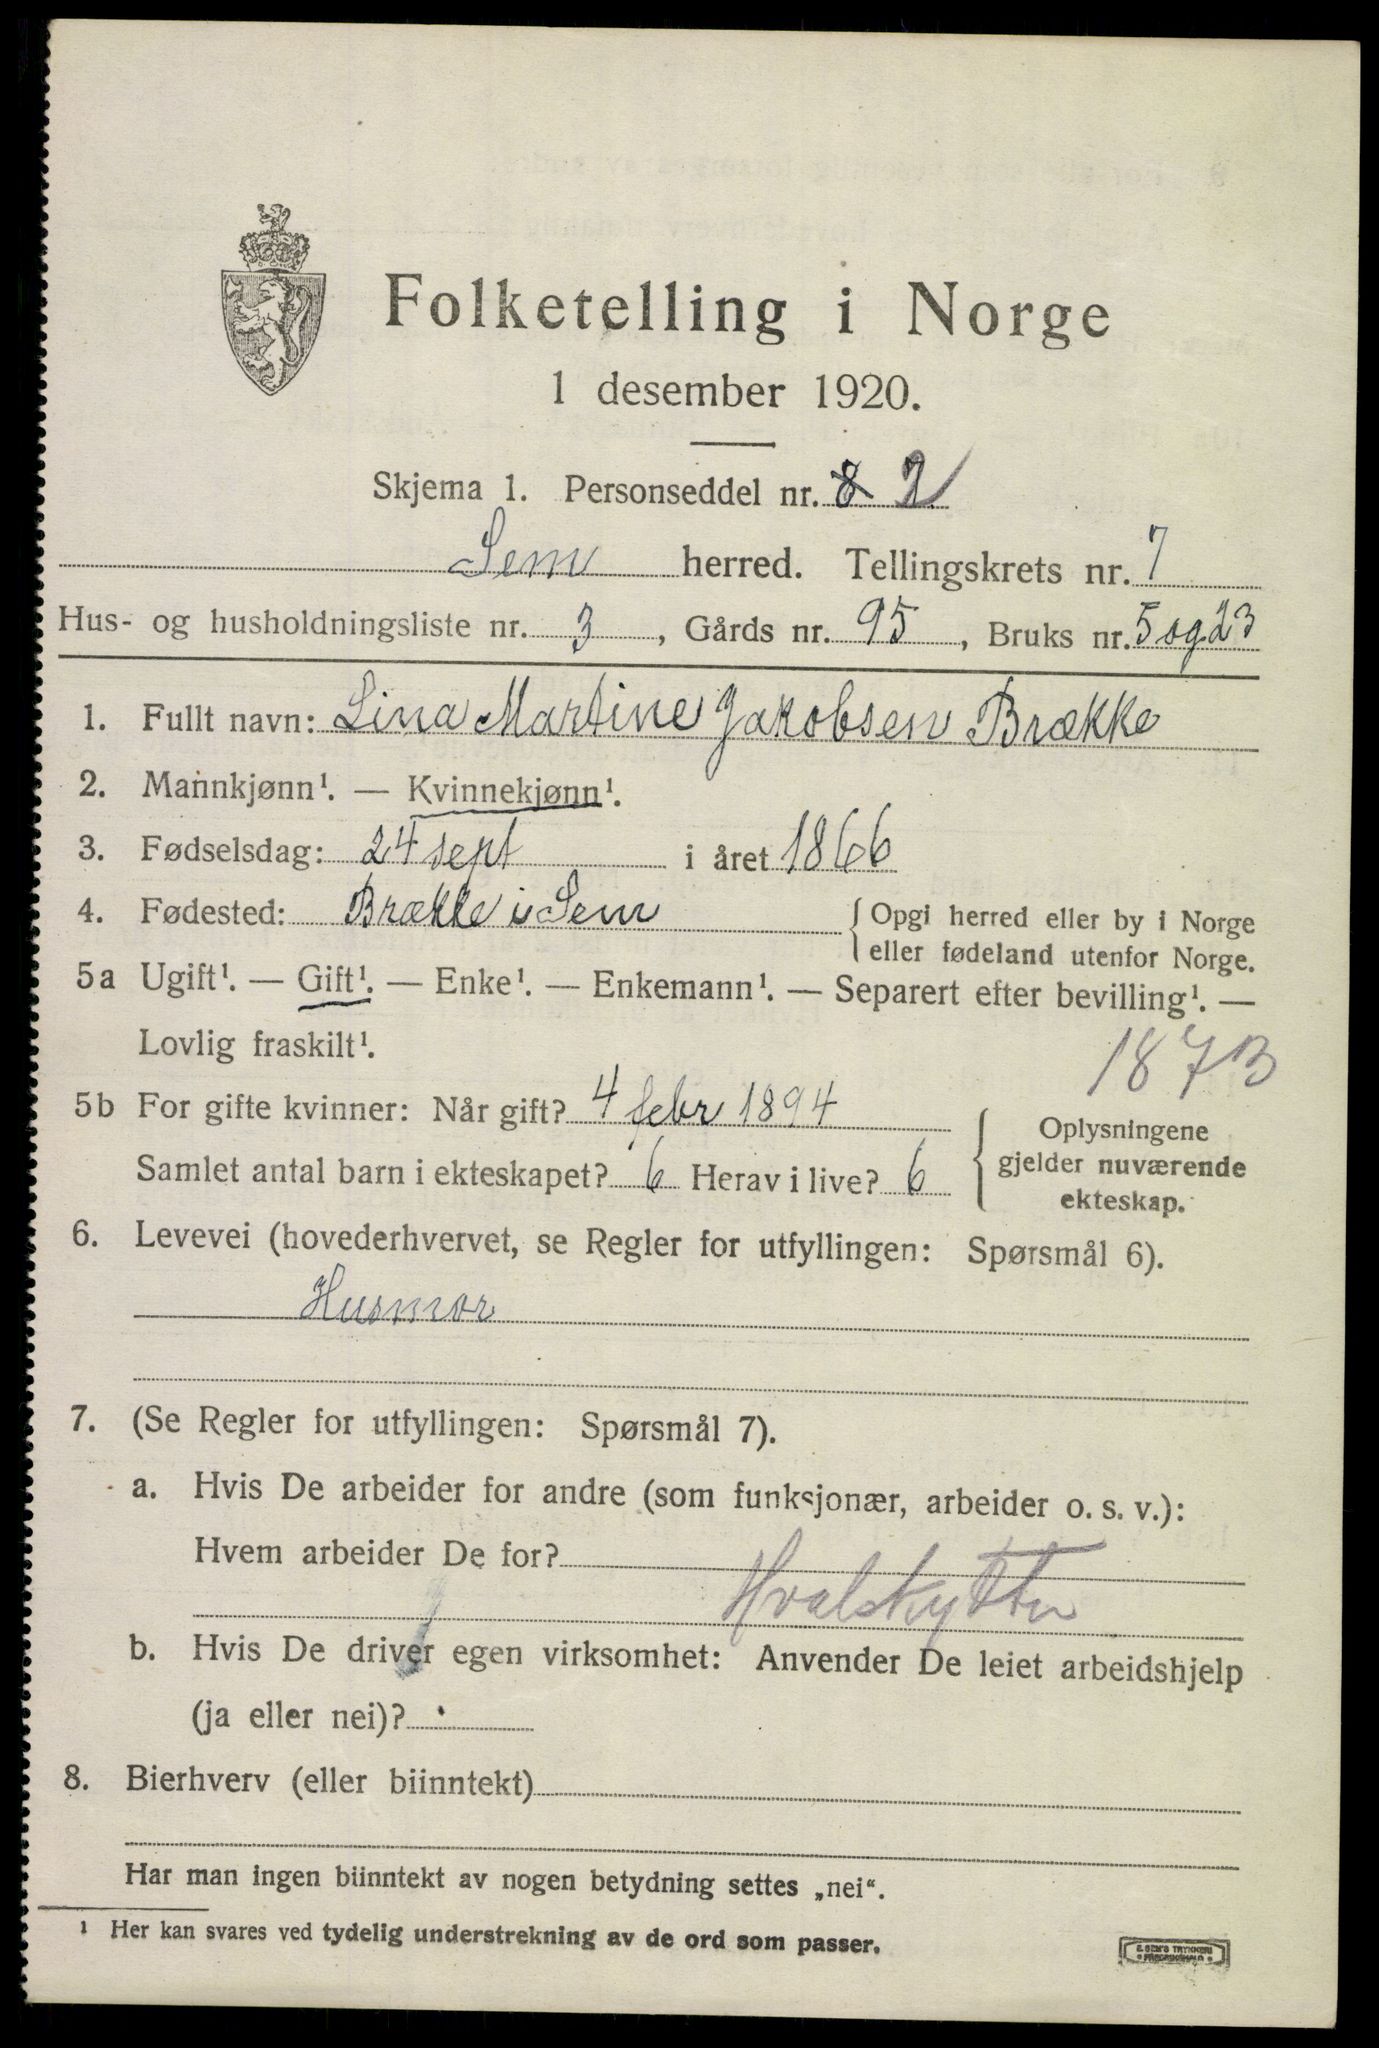 Folketelling i Norge
1 desember 1920.
Skjema 1. Personseddel nr. 8 2
Sem herred. Tellingskrets nr. 7
Hus- og husholdningsliste nr. 3, Gårds nr. 95, Bruks nr. 5 og 23
1. Fullt navn: Lina Martine Jakobsen Brække
2. Mannkjønn¹. — Kvinnekjønn¹.
3. Fødselsdag: 24 sept i året 1866
4. Fødested: Brække i Sem { Opgi herred eller by i Norge
eller fødeland utenfor Norge.
5a Ugift¹. — Gift¹. — Enke¹. — Enkemann¹. — Separert efter bevilling¹. —
Lovlig fraskilt¹.
1873
5b For gifte kvinner: Når gift? 4 febr 1894
Samlet antal barn i ekteskapet? 6 Herav i live? 6
{ Oplysningene
gjelder nuværende
ekteskap.
6. Levevei (hovederhvervet, se Regler for utfyllingen: Spørsmål 6).
Husmor
7. (Se Regler for utfyllingen: Spørsmål 7).
a. Hvis De arbeider for andre (som funksjonær, arbeider o. s. v.):
Hvem arbeider De for?
Hvalskytter
b. Hvis De driver egen virksomhet: Anvender De leiet arbeidshjelp
(ja eller nei)?
8. Bierhverv (eller biinntekt)
Har man ingen biinntekt av nogen betydning settes „nei“.
¹ Her kan svares ved tydelig understrekning av de ord som passer.